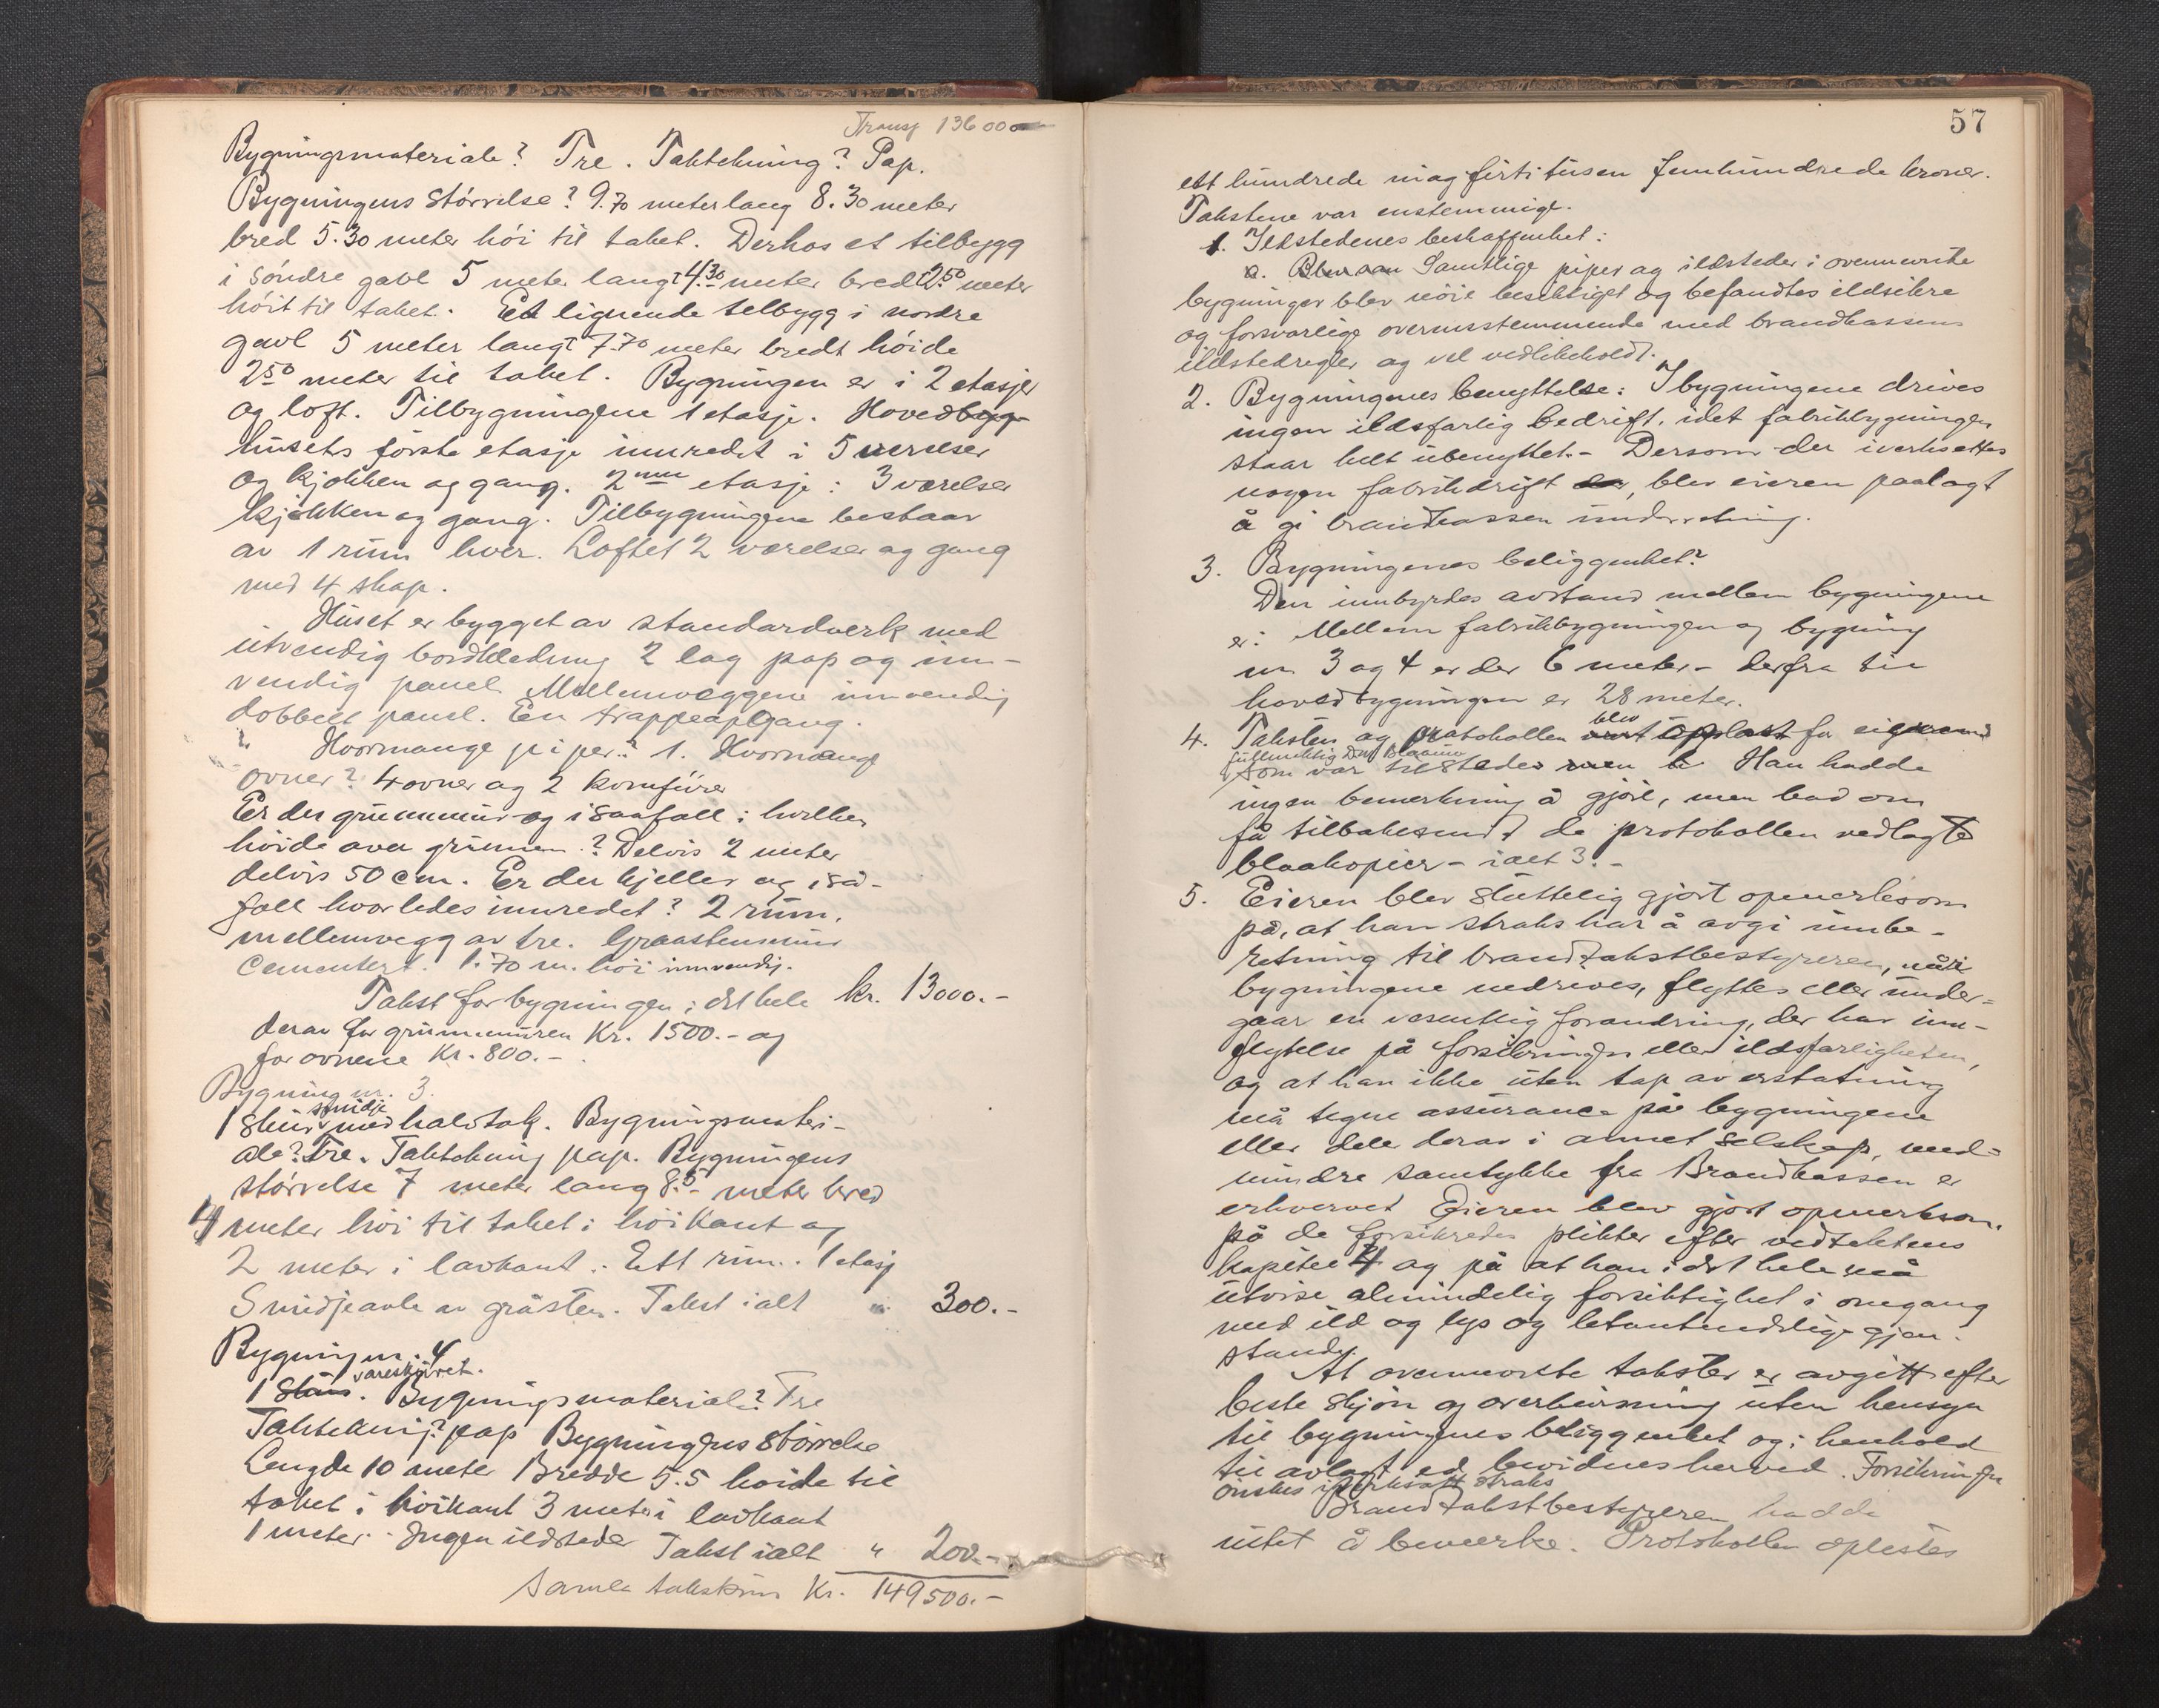 Transp 136000
Bygningsmateriale? Tre. Taktekning? Pap.
Bygningens Størrelse? 9.70 meter lang 8.30 meter
bred 5.30 meter høi til taket. Derhos et tilbygg
i søndre gavl 5 meter langt 4.30 meter bred 2.50 meter
høit til taket. Et lignende tilbygg i nordre
gavl 5 meter langt 7.70 meter bredt høide
2.50 meter til taket. Bygningen er i 2 etasjer
og loft. Tilbygningene 1 etasje. Hovedbygg-
husets første etasje innredet i 5 værelser
og kjøkken og gang. 2nen etasje: 3 værelser
kjøkken og gang. Tilbygningene bestaar
av 1 rum hver. Loftet 2 værelser og gang
med 4 skap.
Huset er bygget av standardverk med
utvendig bordklædning 2 lag pap og inn-
vendig panel. Mellemvæggene innvendig
dobbelt panel. En trappeopgang.
Hvormange piper? 1. Hvormange
ovner? 4 ovner og 2 komfürer
Er der grunnmur og i saafall i hvilken
høide over grunnen? Delvis 2 meter
delvis 50 cm. Er der kjeller og i så-
fall hvorledes innredet? 2 rum,
mellemvegg av tre. Graastensmur
Cementert. 1.70 m. høi innvendig.
Takst for bygningen i det hele kr. 13000.-
derav for grunnmuren Kr. 1500.- og
for ovnene Kr. 800.-
Bygning nr. 3.
1 Skur smidje med halvtak. Bygningsmateri-
ale? Tre. Taktekning pap. Bygningens
størrelse 7 meter lang 8.5- meter bred
4 meter høi til taket i høikant og
2 meter i lavkant. Ett rum. 1 etasj
Smidjeavle av gråsten. Takst ialt " 300.-
Bygning nr. 4
1 Skur. vareskuret. Bygningsmateriale? Tre
Taktekning? pap Bygningens størrelse
Lengde 10 meter Bredde 5.5 høide til
taket i høikant 3 meter i lavkant
1 meter. Ingen ildsteder Takst ialt " 200.-
Samla takstsum Kr. 149500.-
57
ett hundrede niogfirti tusen femhundrede kroner.
Takstene var enstemmige.
1. Ildstedenes beskaffenhet:
a. Samtlige piper og ildsteder i ovennevnte
bygninger blev nøie besiktiget og befandtes ildsikre
og forsvarlige overensstemmende med brandkassens
ildstedregler og vel vedlikeholdt.
2. Bygningenes benyttelse: I bygningene drives
ingen ildsfarlig bedrift, idet fabrikbygningen
staar helt ubenyttet.- Dersom der iverksettes
nogen fabrikdrift, blev eieren paalagt
å gi brandkassen underretning.
3. Bygningenes beliggenhet?
Den innbyrdes avstand mellem bygningene
er: Mellem fabrikbygningen og bygning
nr 3 og 4 er der 6 meter - derfra til
hovedbygningen er 28 meter.
4. Taksten og protokollen blev oplæst for
som var tilstede. Han hadde
ingen bemerkning å gjøre, men bad om
få tilbakesendt de protokollen vedlagte
blaakopier - ialt 3.-
5. Eieren blev sluttelig gjort opmerksom
på, at han straks har å avgi innbe-
retning til brandtakstbestyreren, når
bygningene nedrives, flyttes eller under-
gaar en vesentlig forandring, der har inn-
flytelse på forsikringen eller ildsfarligheten,
og at han ikke uten tap av erstatning
må tegne assurance på bygningene
eller dele derav i annet selskap, med-
mindre samtykke fra Brandkassen er
erhvervet Eieren blev gjort opmerksom
på de forsikredes plikter efter vedtektens
kapitel 4 og på at han i det hele må
utvise almindelig forsiktighet i omgang
med ild og lys og letantendelige gjen-
stande.
At ovennevnte takster er avgitt efter
beste skjøn og overbevisning uten hensyn
til bygningenes beliggenhet og i henhold
til avlagt ed bevidnes herved. Forsikringen
ønskes iverksatt straks
Brandtakstbestyreren hadde
intet å bemerke. Protokollen oplestes